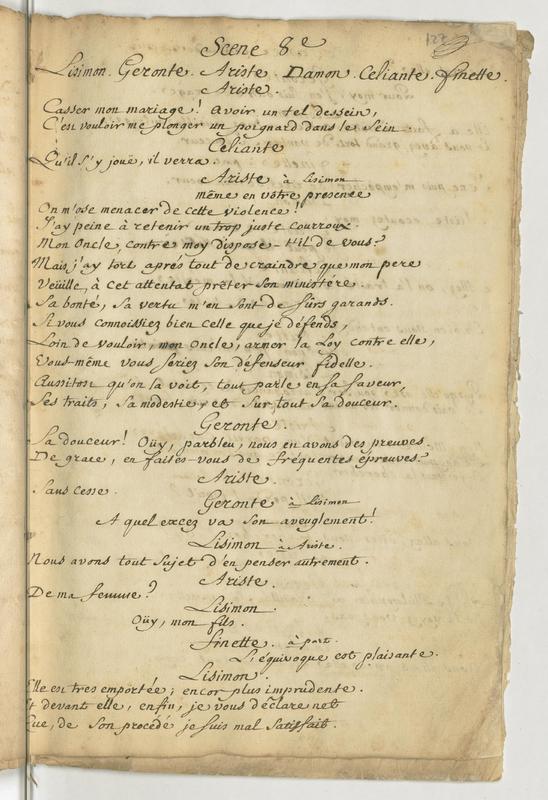 Scene 8e
Lisimon. Geronte. Ariste. Damon. Celiante. finette.
Ariste.
Casser mon mariage! avoir un tel dessein,
C'est vouloir me plonger un poignard dans le Sein.
Celiante
Qu'il s'y joue, il verra.
Ariste à Lisimon
même en votre presence
On m'ose menacer de cette violence!
J'ay peine à retenir un trop juste courroux.
Mon Oncle, contre moy dispose-t-il de vous?
Mais j'ay tort aprés tout de craindre que mon pere
Veüille, à cet attentat prêter Son ministère.
Sa bonté, Sa vertu m'en Sont de sûrs garands.
Si vous connoissiez bien celle que je défends,
Loin de vouloir, mon Oncle, armer la Loy contre elle,
Vous-même vous seriez Son défenseur fidelle.
Aussitost qu'on la voit, tout parle en sa faveur,
Ses traits, Sa modestie, et Sur tout Sa douceur.
Geronte.
Sa douceur! Oüy, parbleu, nous en avons des preuves.
De grace, en faites-vous de fréquentes épreuves?
Ariste.
Sans cesse.
Geronte à Lisimon
A quel excez va Son aveuglement!
Lisimon à Ariste.
Nous avons tout Sujet d'en penser autrement.
Ariste.
De ma femme?
Lisimon.
Oüy, mon fils.
finette. à part.
L'équivoque est plaisante.
Lisimon.
Elle est tres emportée; encor plus imprudente.
Et devant elle, enfin, je vous déclare net
Que, de Son procédé je suis mal Satisfait.